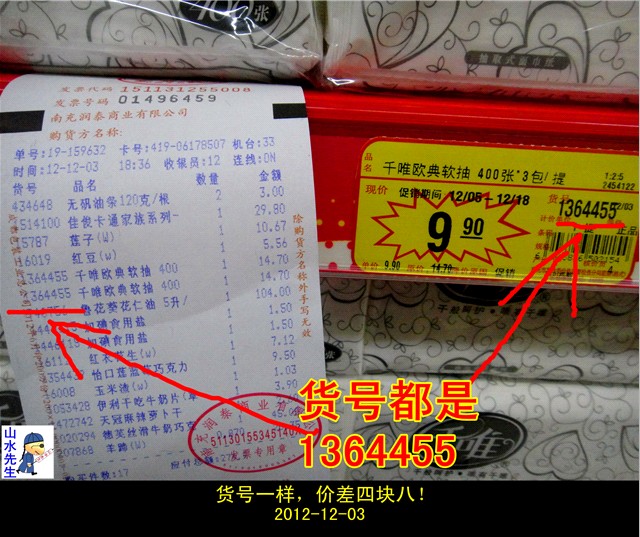 400张
抽取式面巾纸
发票代码 151131255008
发票号码 01496459
南充润泰商业有限公司
购货方名称:
单号:19-159632 卡号:419-06178507 机台:33
时间:12-12-03 18:36 收银员:12 连线:ON
货号 品名 数量 金额
434648 无矾油条120克/根 2 3.00
514100 佳俊卡通家族系列- 1 29.80
5787 莲子(W) 1 10.67
6019 红豆(w) 1 5.56
1364455 千唯欧典软抽 400 1 14.70
1364455 千唯欧典软抽 400 1 14.70
花葵花仁油 5升/ 1 104.00
加碘食用盐 1 1.50
加碘食用盐 1 1.50
红衣花生(w) 1 7.12
怡口莲 巧克力 1 9.50
6008 玉米渣(w) 1 1.03
053428 伊利干吃牛奶片( 1 3.90
472742 天冠麻辣萝卜干
1020294 德芙丝滑牛奶巧克
207868 羊蹄(W)
购买件数:17
除购货方名称外手写无效
511301553451407
发票专用章
品名
千唯欧典软抽 400张*3包/提
现价
促销期间 12/05-12/18
1:2:5
2454122
货号
1364455
9.90
正品
原价
促销
货号都是
1364455
山水先生
货号一样，价差四块八！
2012-12-03